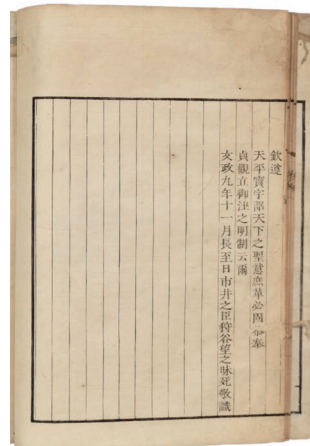 欽遵
天平寶字詔天下之聖意庶
貞觀立御注之明制云爾
文政九年十一月長至日市井之臣狩谷望之昧死敬識